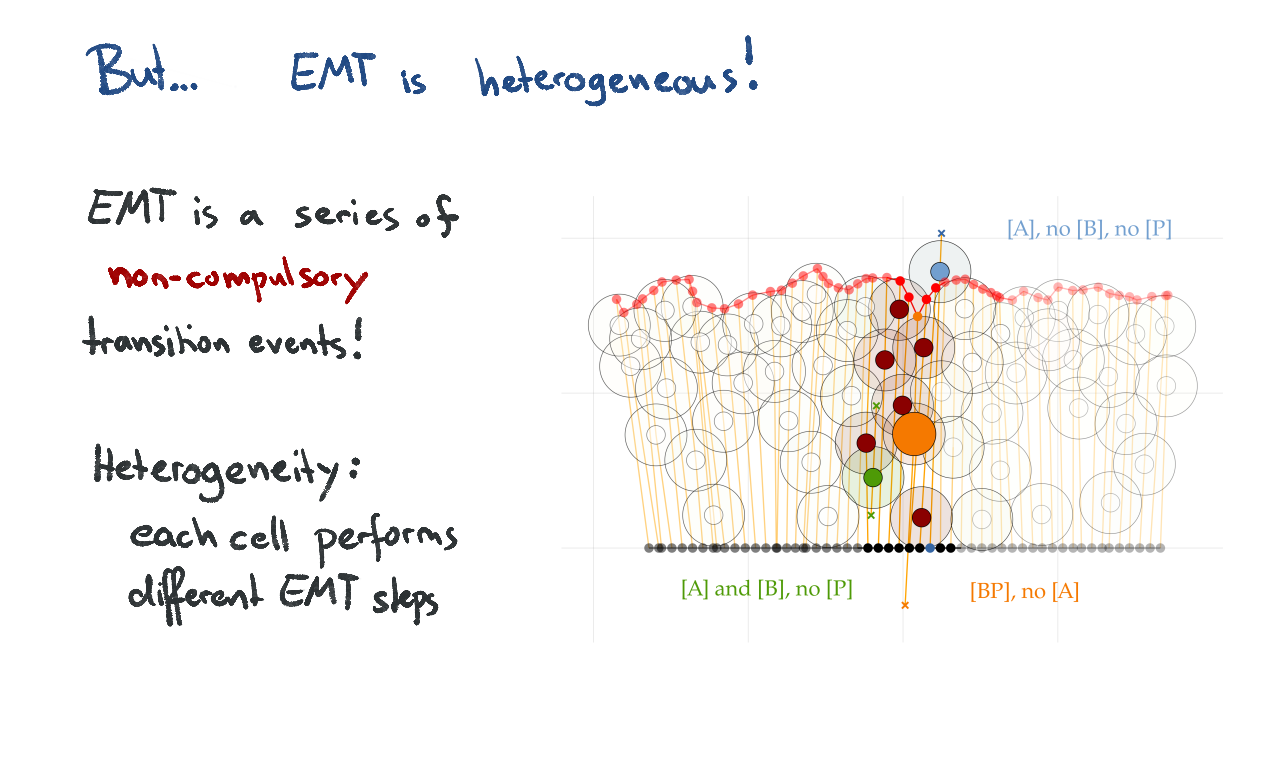 But... EMT is heterogeneous!
EMT is a series of
non-compulsory
transition events!
Heterogeneity:
each cell performs
different EMT steps
[A], no [B], no [P]
[A] and [B], no [P]
[BP], no [A]